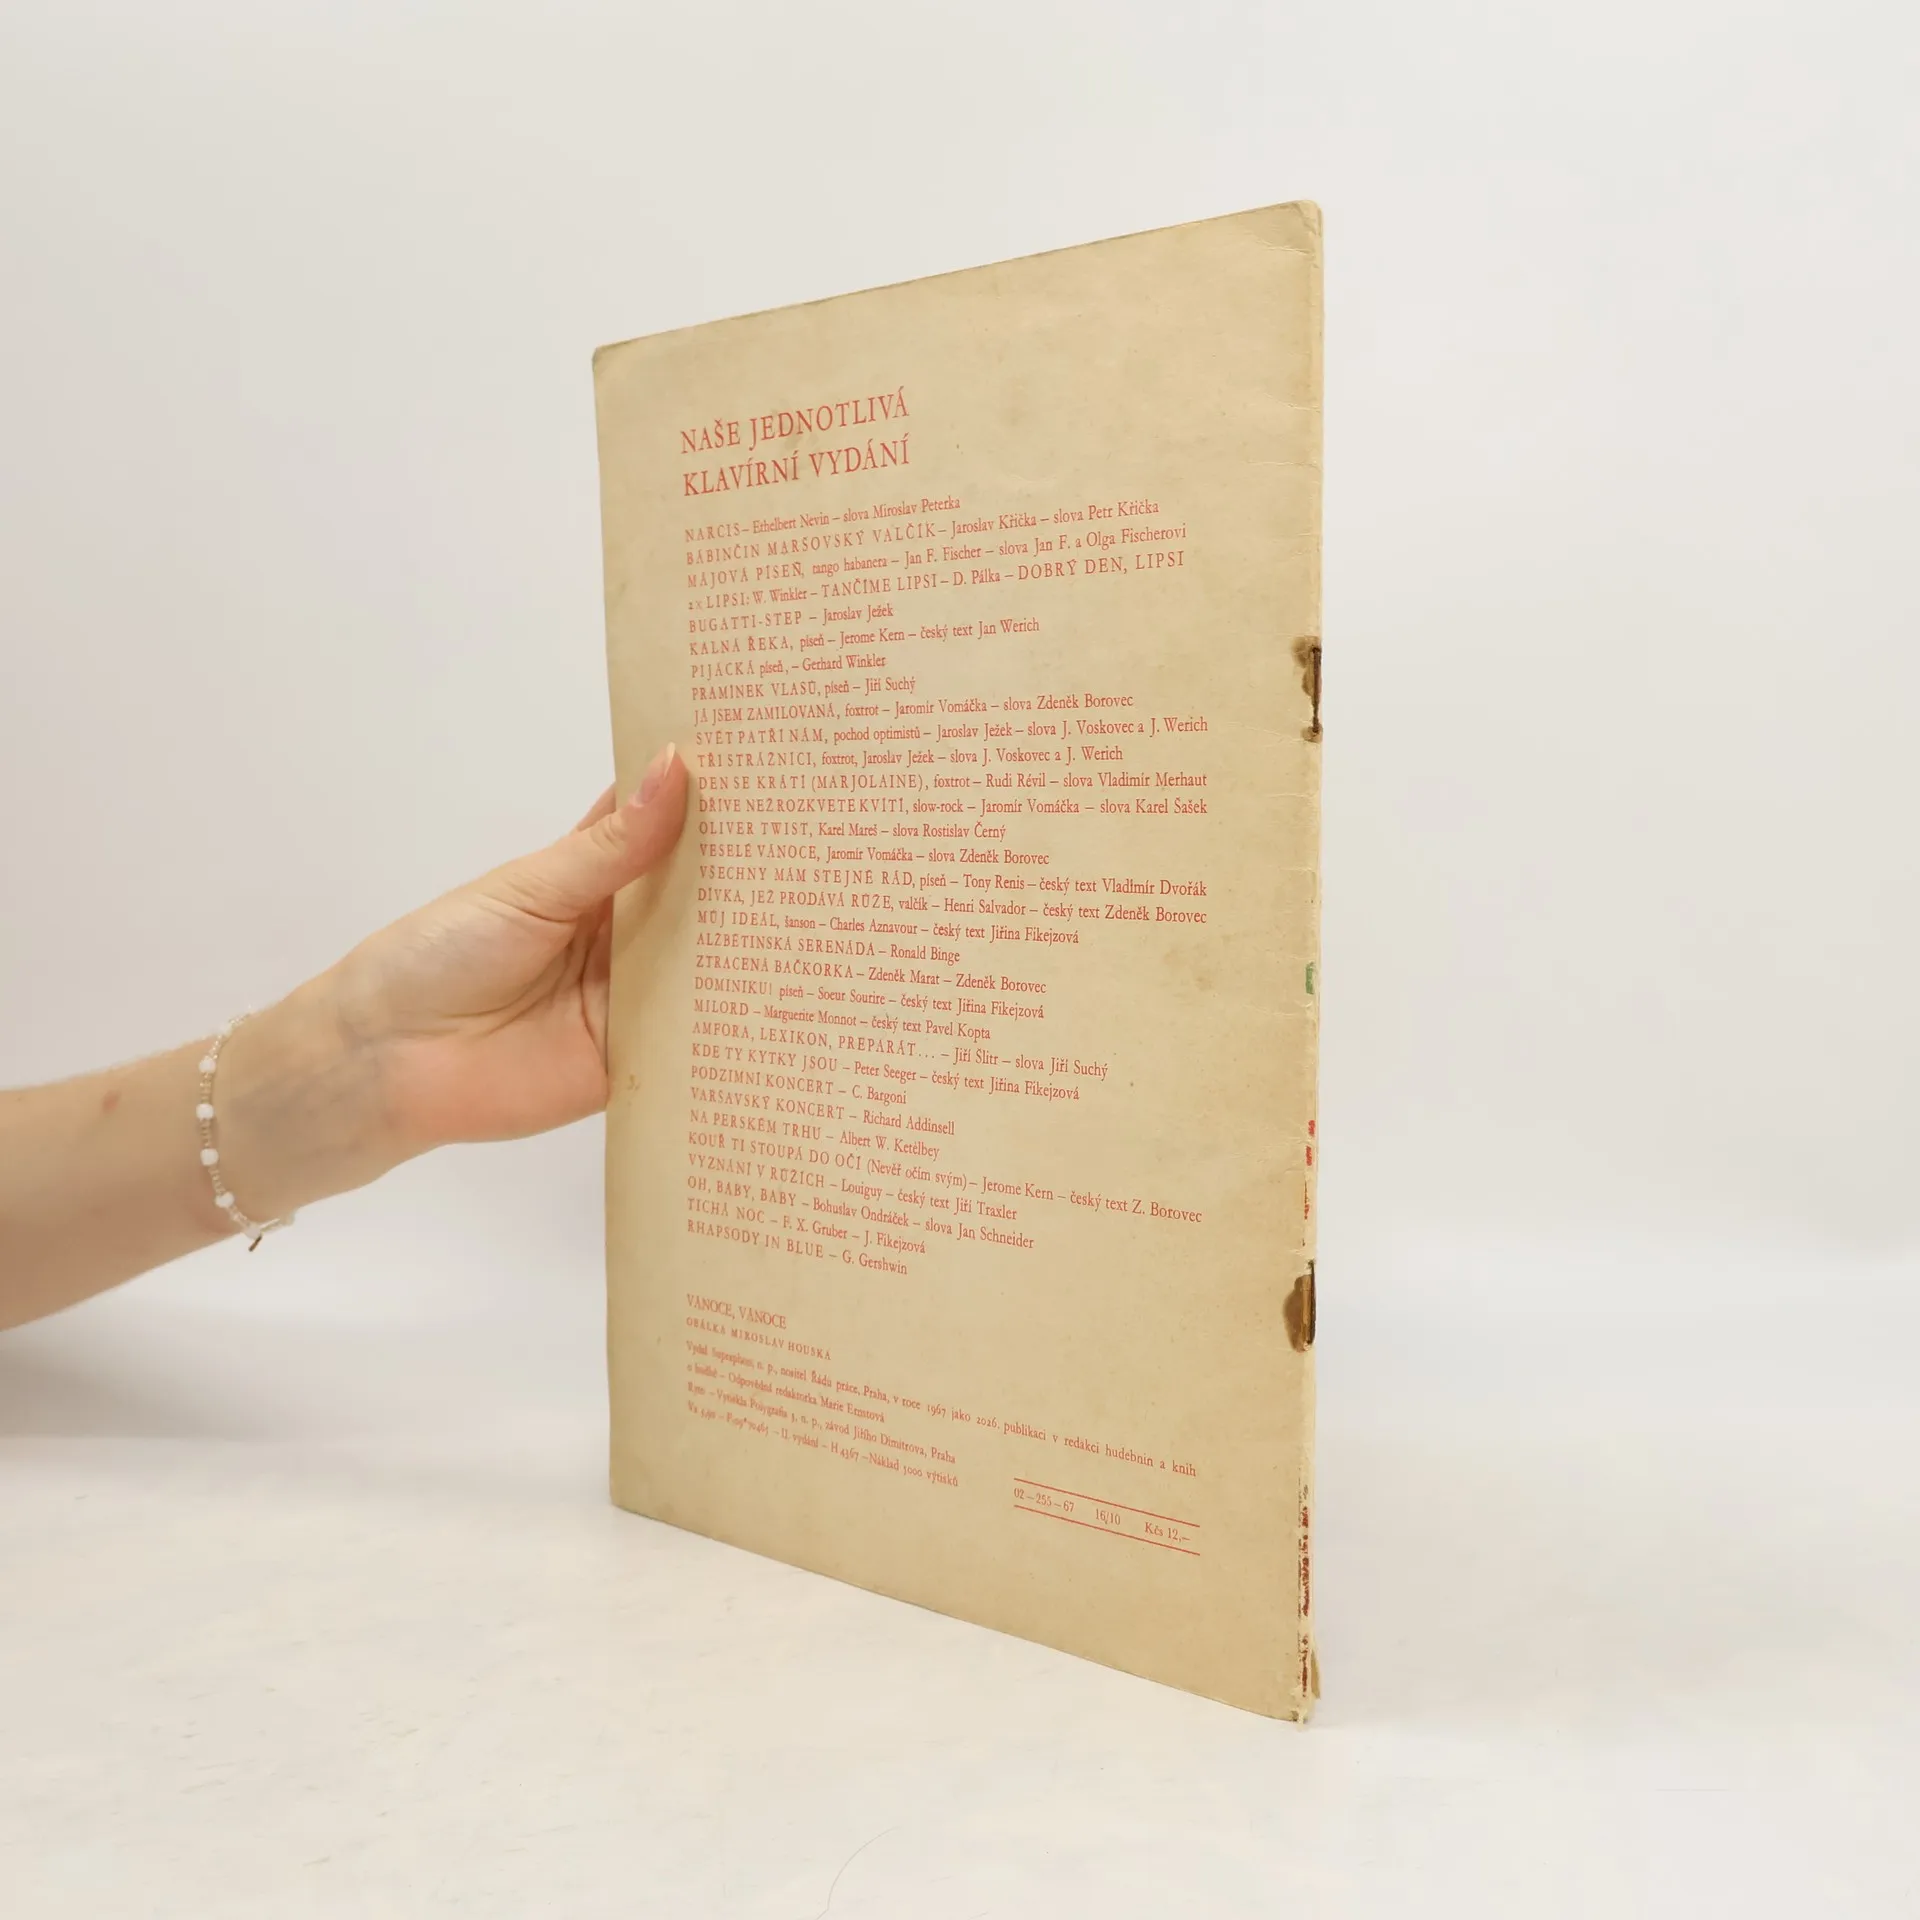 NAŠE JEDNOTLIVÁ
KLAVÍRNÍ VYDÁNÍ
NARCIS – Ethelbert Nevin – slova Miroslav Peterka
BABINČIN MARŠOVSKÝ VALČÍK – Jaroslav Křička – slova Petr Křička
MÁJOVÁ PÍSEŇ, tango habanera – Jan F. Fischer – slova Jan F. a Olga Fischerovi
2× LIPSI: W. Winkler – TANČÍME LIPSI – D. Pálka – DOBRÝ DEN, LIPSI
BUGATTI-STEP – Jaroslav Ježek
KALNÁ ŘEKA, píseň – Jerome Kern – český text Jan Werich
PIJÁCKÁ píseň, – Gerhard Winkler
PRAMÍNEK VLASŮ, píseň – Jiří Suchý
JÁ JSEM ZAMILOVANÁ, foxtrot – Jaromír Vomáčka – slova Zdeněk Borovec
SVĚT PATŘÍ NÁM, pochod optimistů – Jaroslav Ježek – slova J. Voskovec a J. Werich
TŘI STRÁŽNÍCI, foxtrot, Jaroslav Ježek – slova J. Voskovec a J. Werich
DEN SE KRÁTÍ (MARJOLAINE), foxtrot – Rudi Révil – slova Vladimír Merhaut
DŘÍVE NEŽ ROZKVETE KVÍTÍ, slow-rock – Jaromír Vomáčka – slova Karel Šašek
OLIVER TWIST, Karel Mareš – slova Rostislav Černý
VESELÉ VÁNOCE, Jaromír Vomáčka – slova Zdeněk Borovec
VŠECHNY MÁM STEJNĚ RÁD, píseň – Tony Renis – český text Vladimír Dvořák
DÍVKA, JEŽ PRODÁVÁ RŮŽE, valčík – Henri Salvador – český text Zdeněk Borovec
MŮJ IDEÁL, šanson – Charles Aznavour – český text Jiřina Fikejzová
ALŽBĚTINSKÁ SERENÁDA – Ronald Binge
ZTRACENÁ BAČKORKA – Zdeněk Marat – Zdeněk Borovec
DOMINIKU! píseň – Soeur Sourire – český text Jiřina Fikejzová
MILORD – Marguerite Monnot – český text Pavel Kopta
AMFORA, LEXIKON, PREPARÁT... – Jiří Šlitr – slova Jiří Suchý
KDE TY KYTKY JSOU – Peter Seeger – český text Jiřina Fikejzová
PODZIMNÍ KONCERT – C. Bargoni
VARŠAVSKÝ KONCERT – Richard Addinsell
NA PERSKÉM TRHU – Albert W. Ketélbey
KOUŘ TI STOUPÁ DO OČÍ (Nevěř očím svým) – Jerome Kern – český text Z. Borovec
VYZNÁNÍ V RŮŽÍCH – Louiguy – český text Jiří Traxler
OH, BABY, BABY – Bohuslav Ondráček – slova Jan Schneider
TICHÁ NOC – F. X. Gruber – J. Fikejzová
RHAPSODY IN BLUE – G. Gershwin
VÁNOCE, VÁNOCE
OBÁLKA MIROSLAV HOUSKA
Vydal Supraphon, n. p., nositel Řádu práce, Praha, v roce 1967 jako 2026. publikaci v redakci hudebnin a knih
o hudbě – Odpovědná redaktorka Marie Ernstová
Ryto – Vytiskla Polygrafia 3, n. p., závod Jiřího Dimitrova, Praha
– II. vydání – H 4367 – Náklad 3000 výtisků
02–255–67 16/10 Kčs 12,–